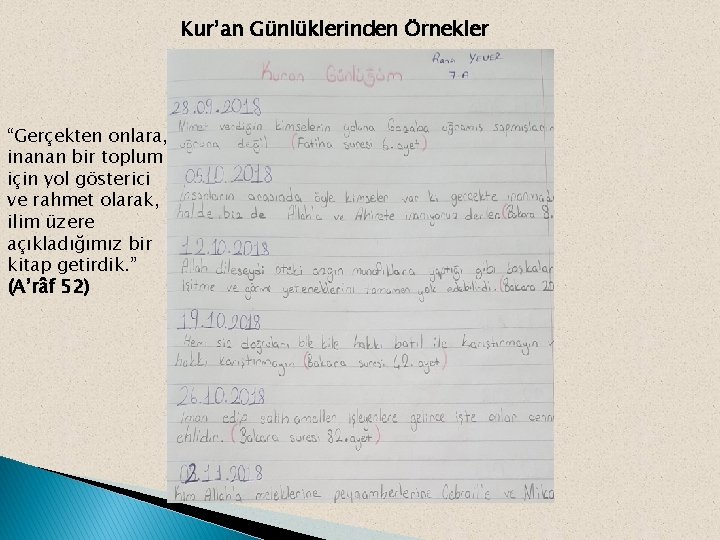 Kur’an Günlüklerinden Örnekler
“Gerçekten onlara,
inanan bir toplum
için yol gösterici
ve rahmet olarak,
ilim üzere
açıkladığımız bir
kitap getirdik.”
(A’râf 52)
Rana YENER
7-A
Kuran Günlüğüm
28.09.2018
Nimet verdiğin kimselerin yoluna Gazaba uğramış sapmışların
uğruna değil (Fatiha suresi 6. ayet)
05.10.2018
İnsanların arasında öyle kimseler var ki gerçekte
halde biz de Allah'a ve Ahirete inanıyoruz derler (Bakara 8.
12.10.2018
Allah dileseydi öteki azgın munafıklara yaptığı gibi başkalar
işitme ve görme yeteneklerini tamamen yok edebilirdi. (Bakara 20
19.10.2018
Hem siz doğruları bile bile hakkı batıl ile karıştırmayın
hakkı karıştırmayın (Bakara suresi 42. ayet)
26.10.2018
iman edip salih ameller işleyenlere gelince işte onlar
ehlidir. (Bakara suresi 82. ayet)
02.11.2018
Kim Allah'a meleklerine peygamberlerine Cebrail'e ve